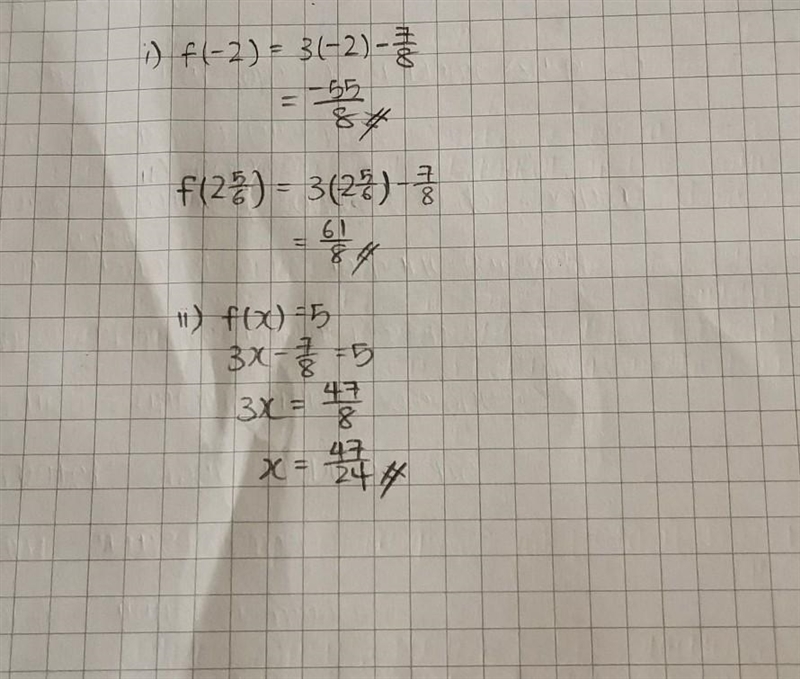 i) f(-2) = 3(-2) - 7/8
= -55/8
f(2 5/6) = 3(2 5/6) - 7/8
= 61/8
ii) f(x) = 5
3x - 7/8 = 5
3x = 47/8
x = 47/24